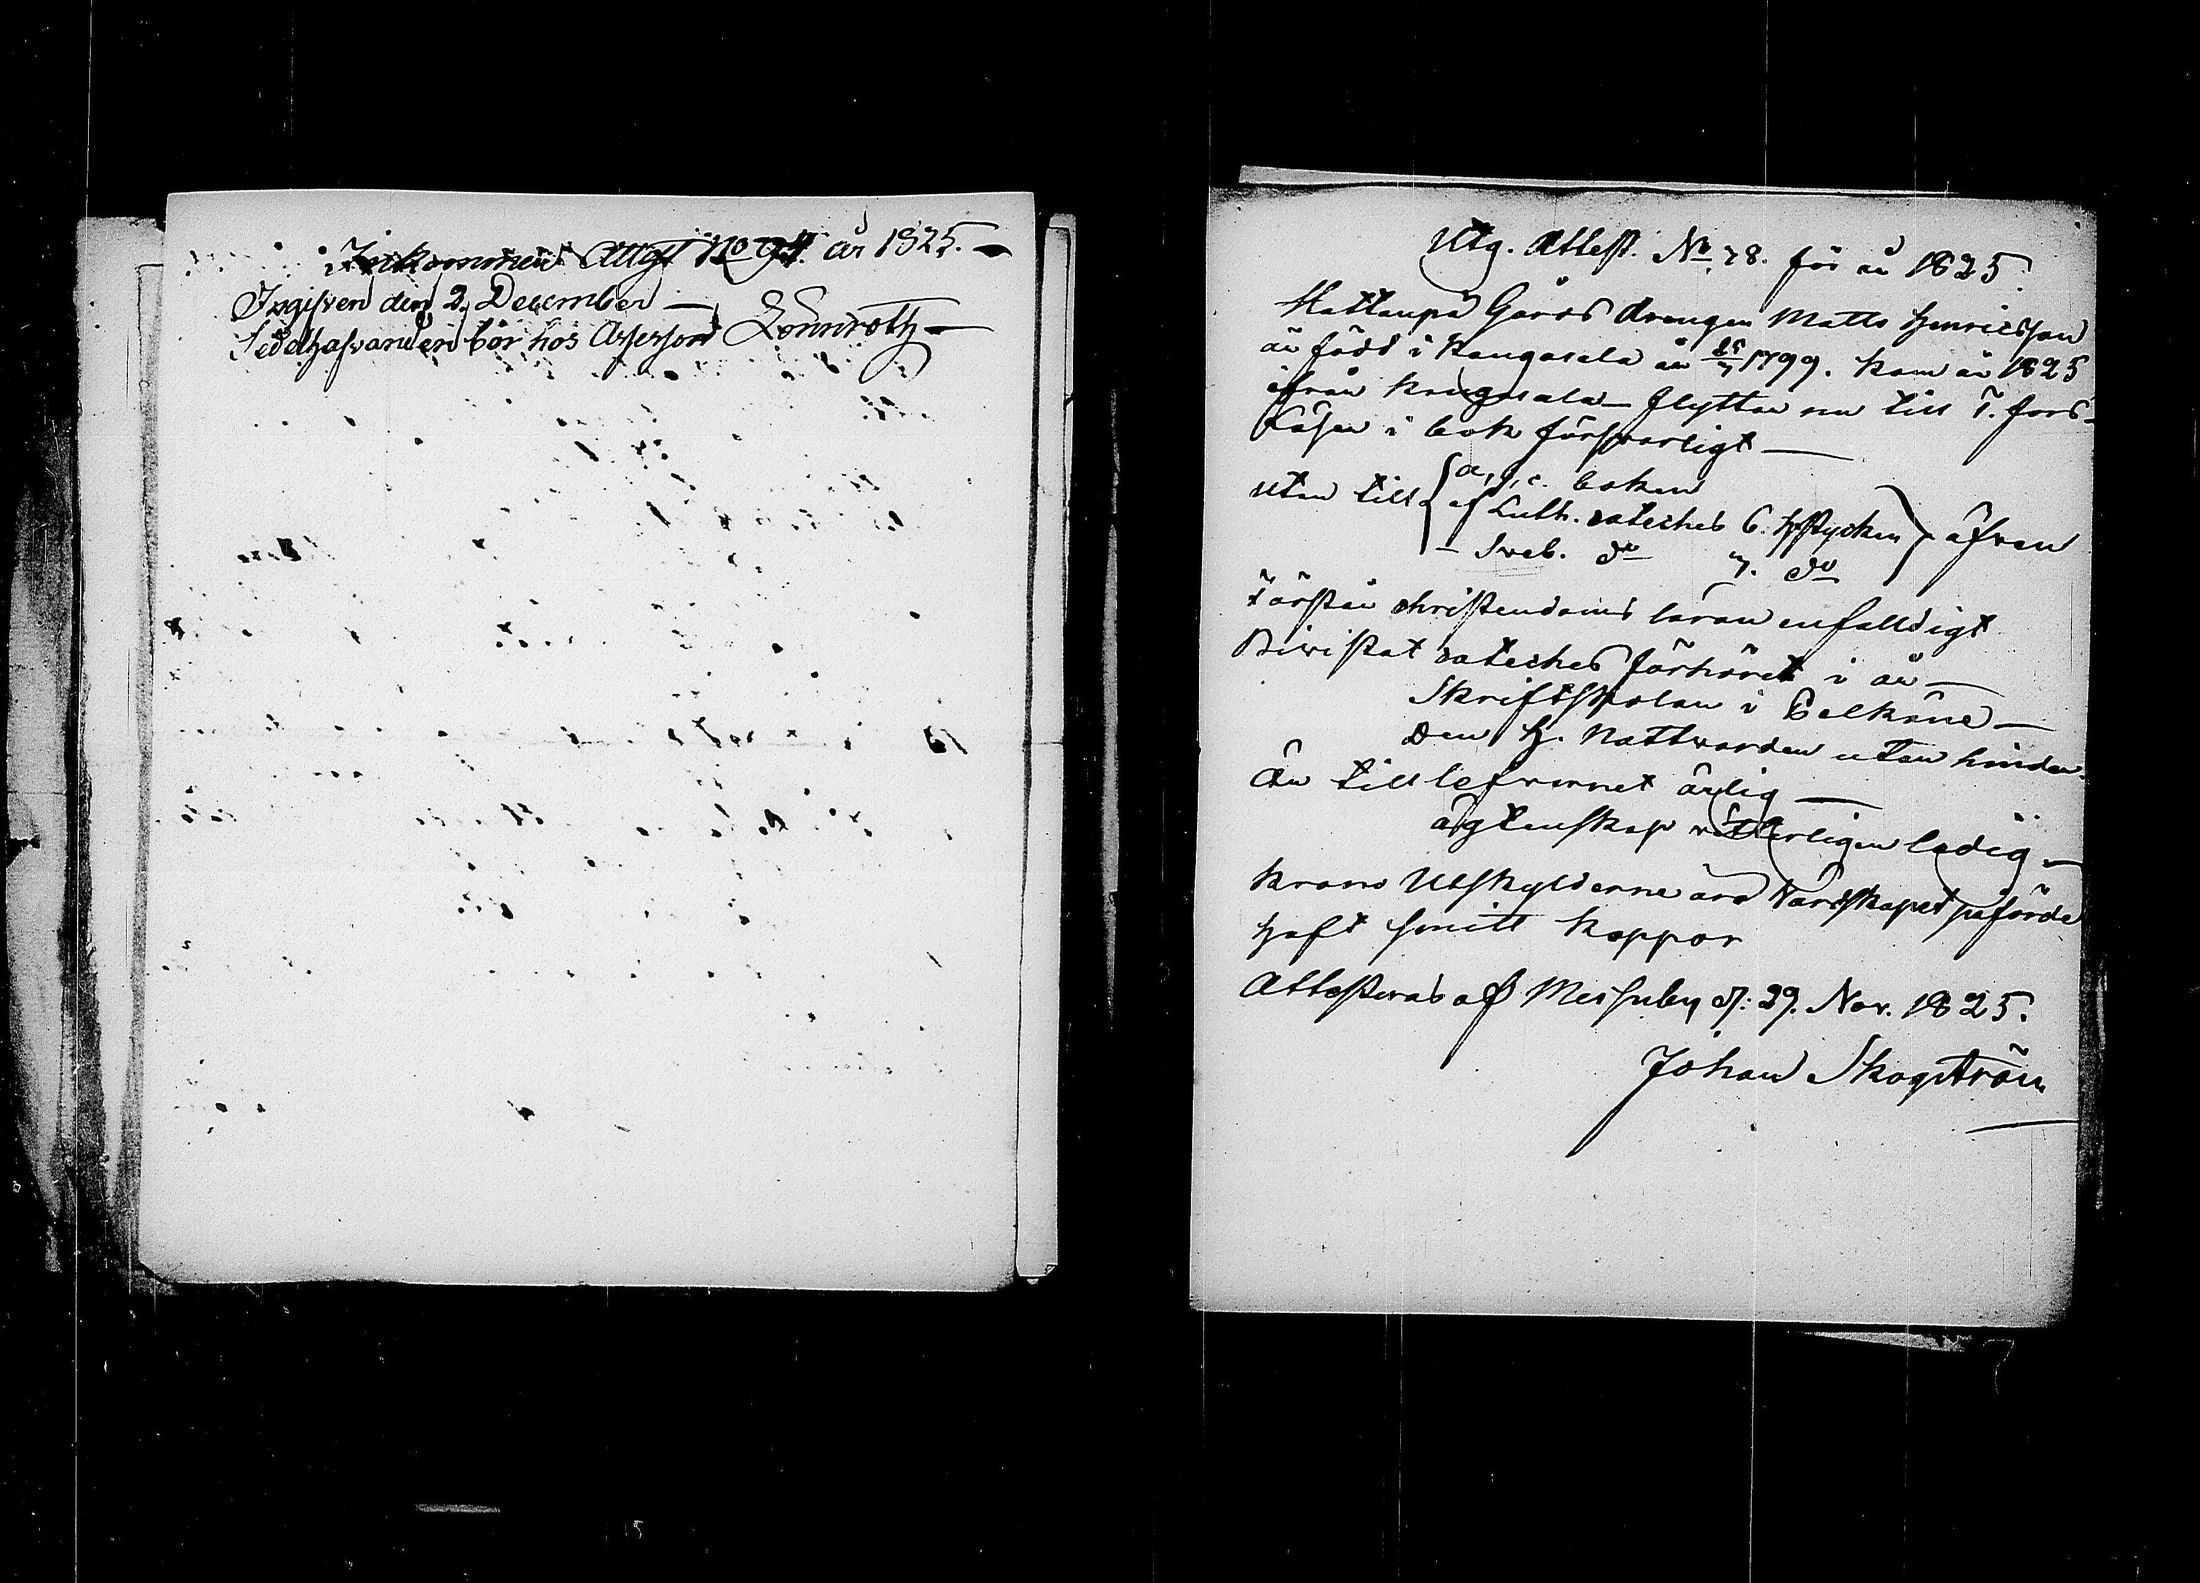 Inkommen Attest No 94. år 1825.
Ingifven den 2 December
Sedelhafvanden bor hos Assessorn Lönnroth
Utg. Attest. No 78. för år 1825
Hattanpä Gårds drengen Matts Henricsson
är född i Kangasala år 25/7 1799. kom år 1825
ifrån Kangasala flyttar nu till T. fors
Läser i bok försvarligt
utan till a, b, c. boken
af Luth. cateches 6. Hstycken äfven
Sveb. do 7. do
Förstår christendoms läran enfalldigt
Bivistat cateches förhöret i år
Skriftskolan i Pelkäne
Den H. Nattvarden utan hinder
Är till lefvernet ärlig
ägtenskap vitterligen ledig
Krono Utskylderne äro Värdskapet påförde
Haft smitt koppor
Attesteras af Messuby d: 29. Nov. 1825.
Johan Skogström